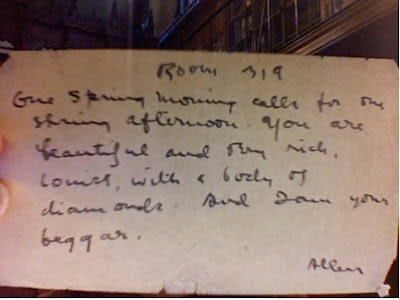 Room 319
One spring morning calls for one
spring afternoon. You are
beautiful and very rich,
Louise, with a body of
diamonds. And I am your
beggar.
Allen